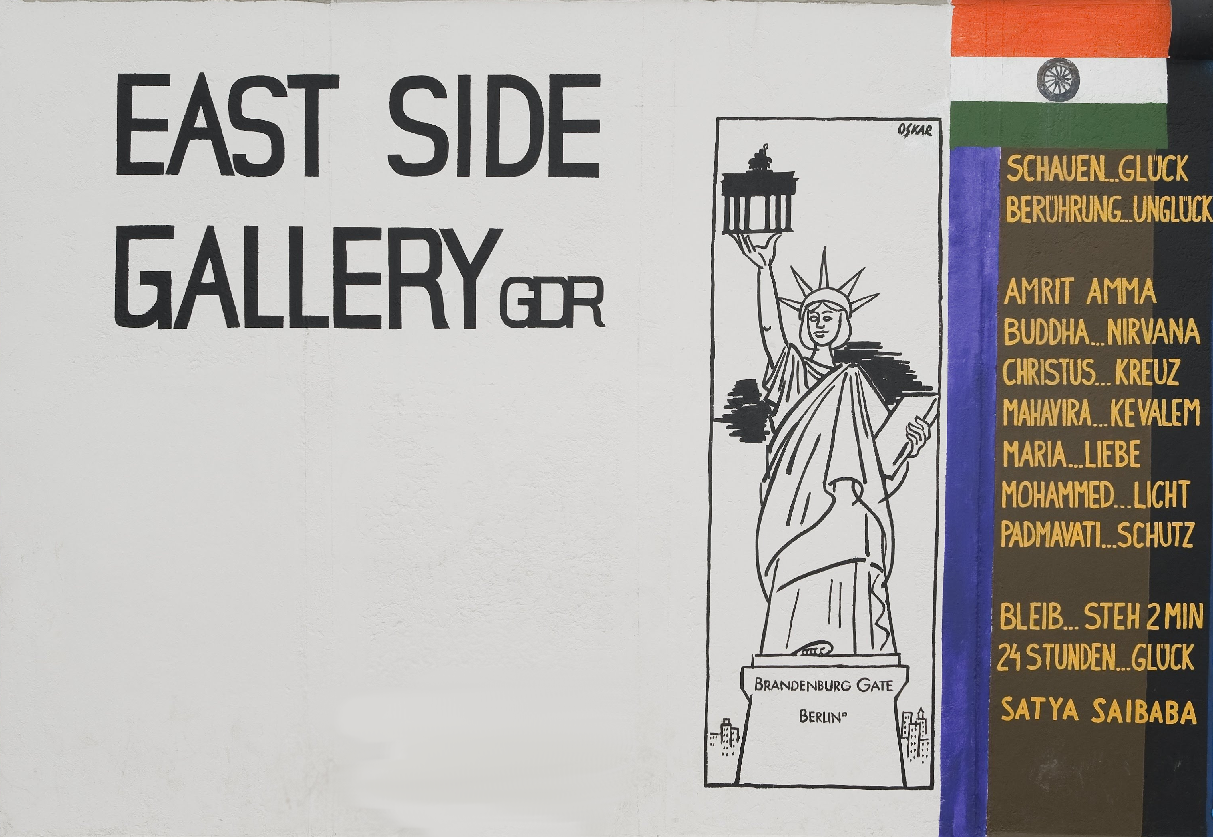 EAST SIDE
GALLERY GDR
OSKAR
BRANDENBURG GATE
BERLIN
SCHAUEN...GLÜCK
BERÜHRUNG...UNGLÜCK
AMRIT AMMA
BUDDHA...NIRVANA
CHRISTUS...KREUZ
MAHAVIRA...KEVALEM
MARIA...LIEBE
MOHAMMED...LICHT
PADMAVATI...SCHUTZ
BLEIB...STEH 2 MIN
24 STUNDEN...GLÜCK
SATYA SAIBABA